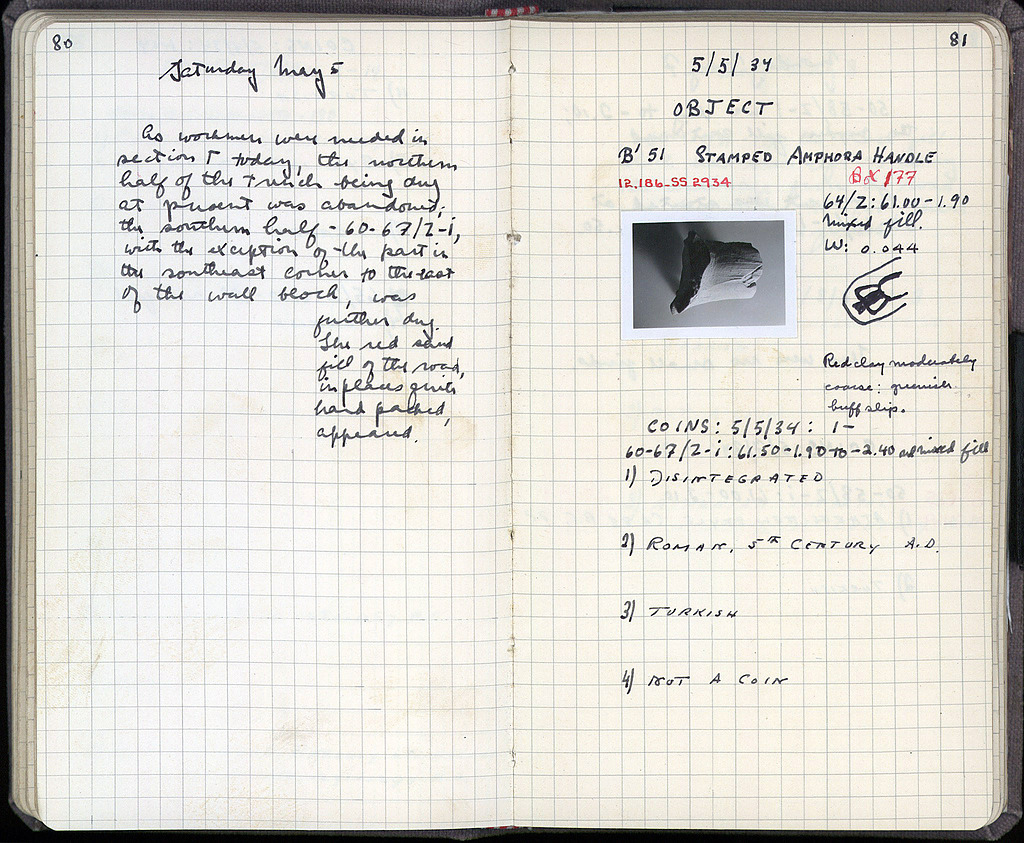 80
Saturday May 5
As workmen were needed in
section Γ today, the northern
half of the trench being dug
at present was abandoned;
the southern half - 60-67/Z-i,
with the exception of the part in
the southeast corner to the east
of the wall block, was
further dug.
The red sand
fill of the road,
in places quite
hard packed,
appeared.
81
5/5/34
OBJECT
B' 51 STAMPED AMPHORA HANDLE
12.186-SS 2934
Bx 177
64/Z: 61.00-1.90
Mixed fill.
W: 0.044
Red clay moderately
coarse: greenish
buff slip.
COINS: 5/5/34: 1-
60-67/Z-i: 61.50-1.90 to -2.40 red mixed fill
1) DISINTEGRATED
2) ROMAN, 5TH CENTURY A.D.
3) TURKISH
4) NOT A COIN